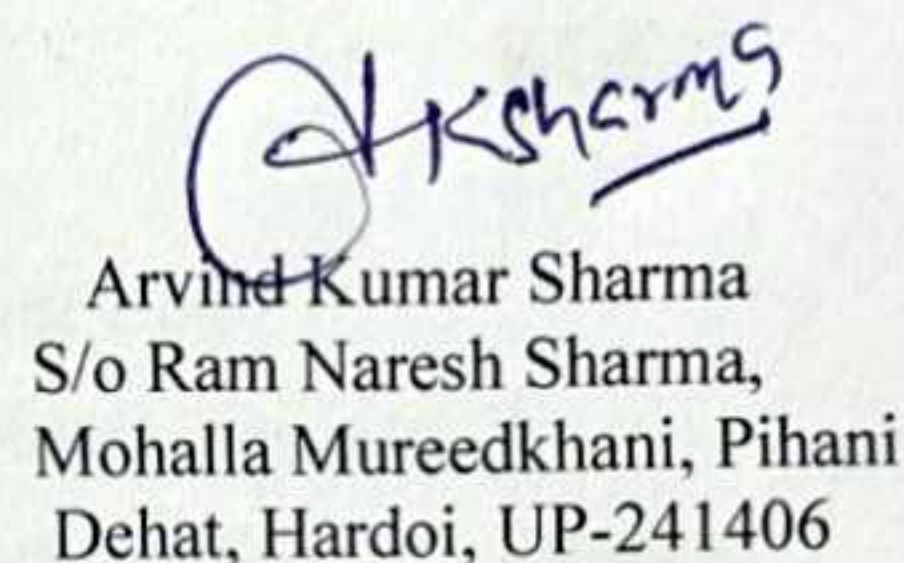 AKSharma
Arvind Kumar Sharma
S/o Ram Naresh Sharma,
Mohalla Mureedkhani, Pihani
Dehat, Hardoi, UP-241406